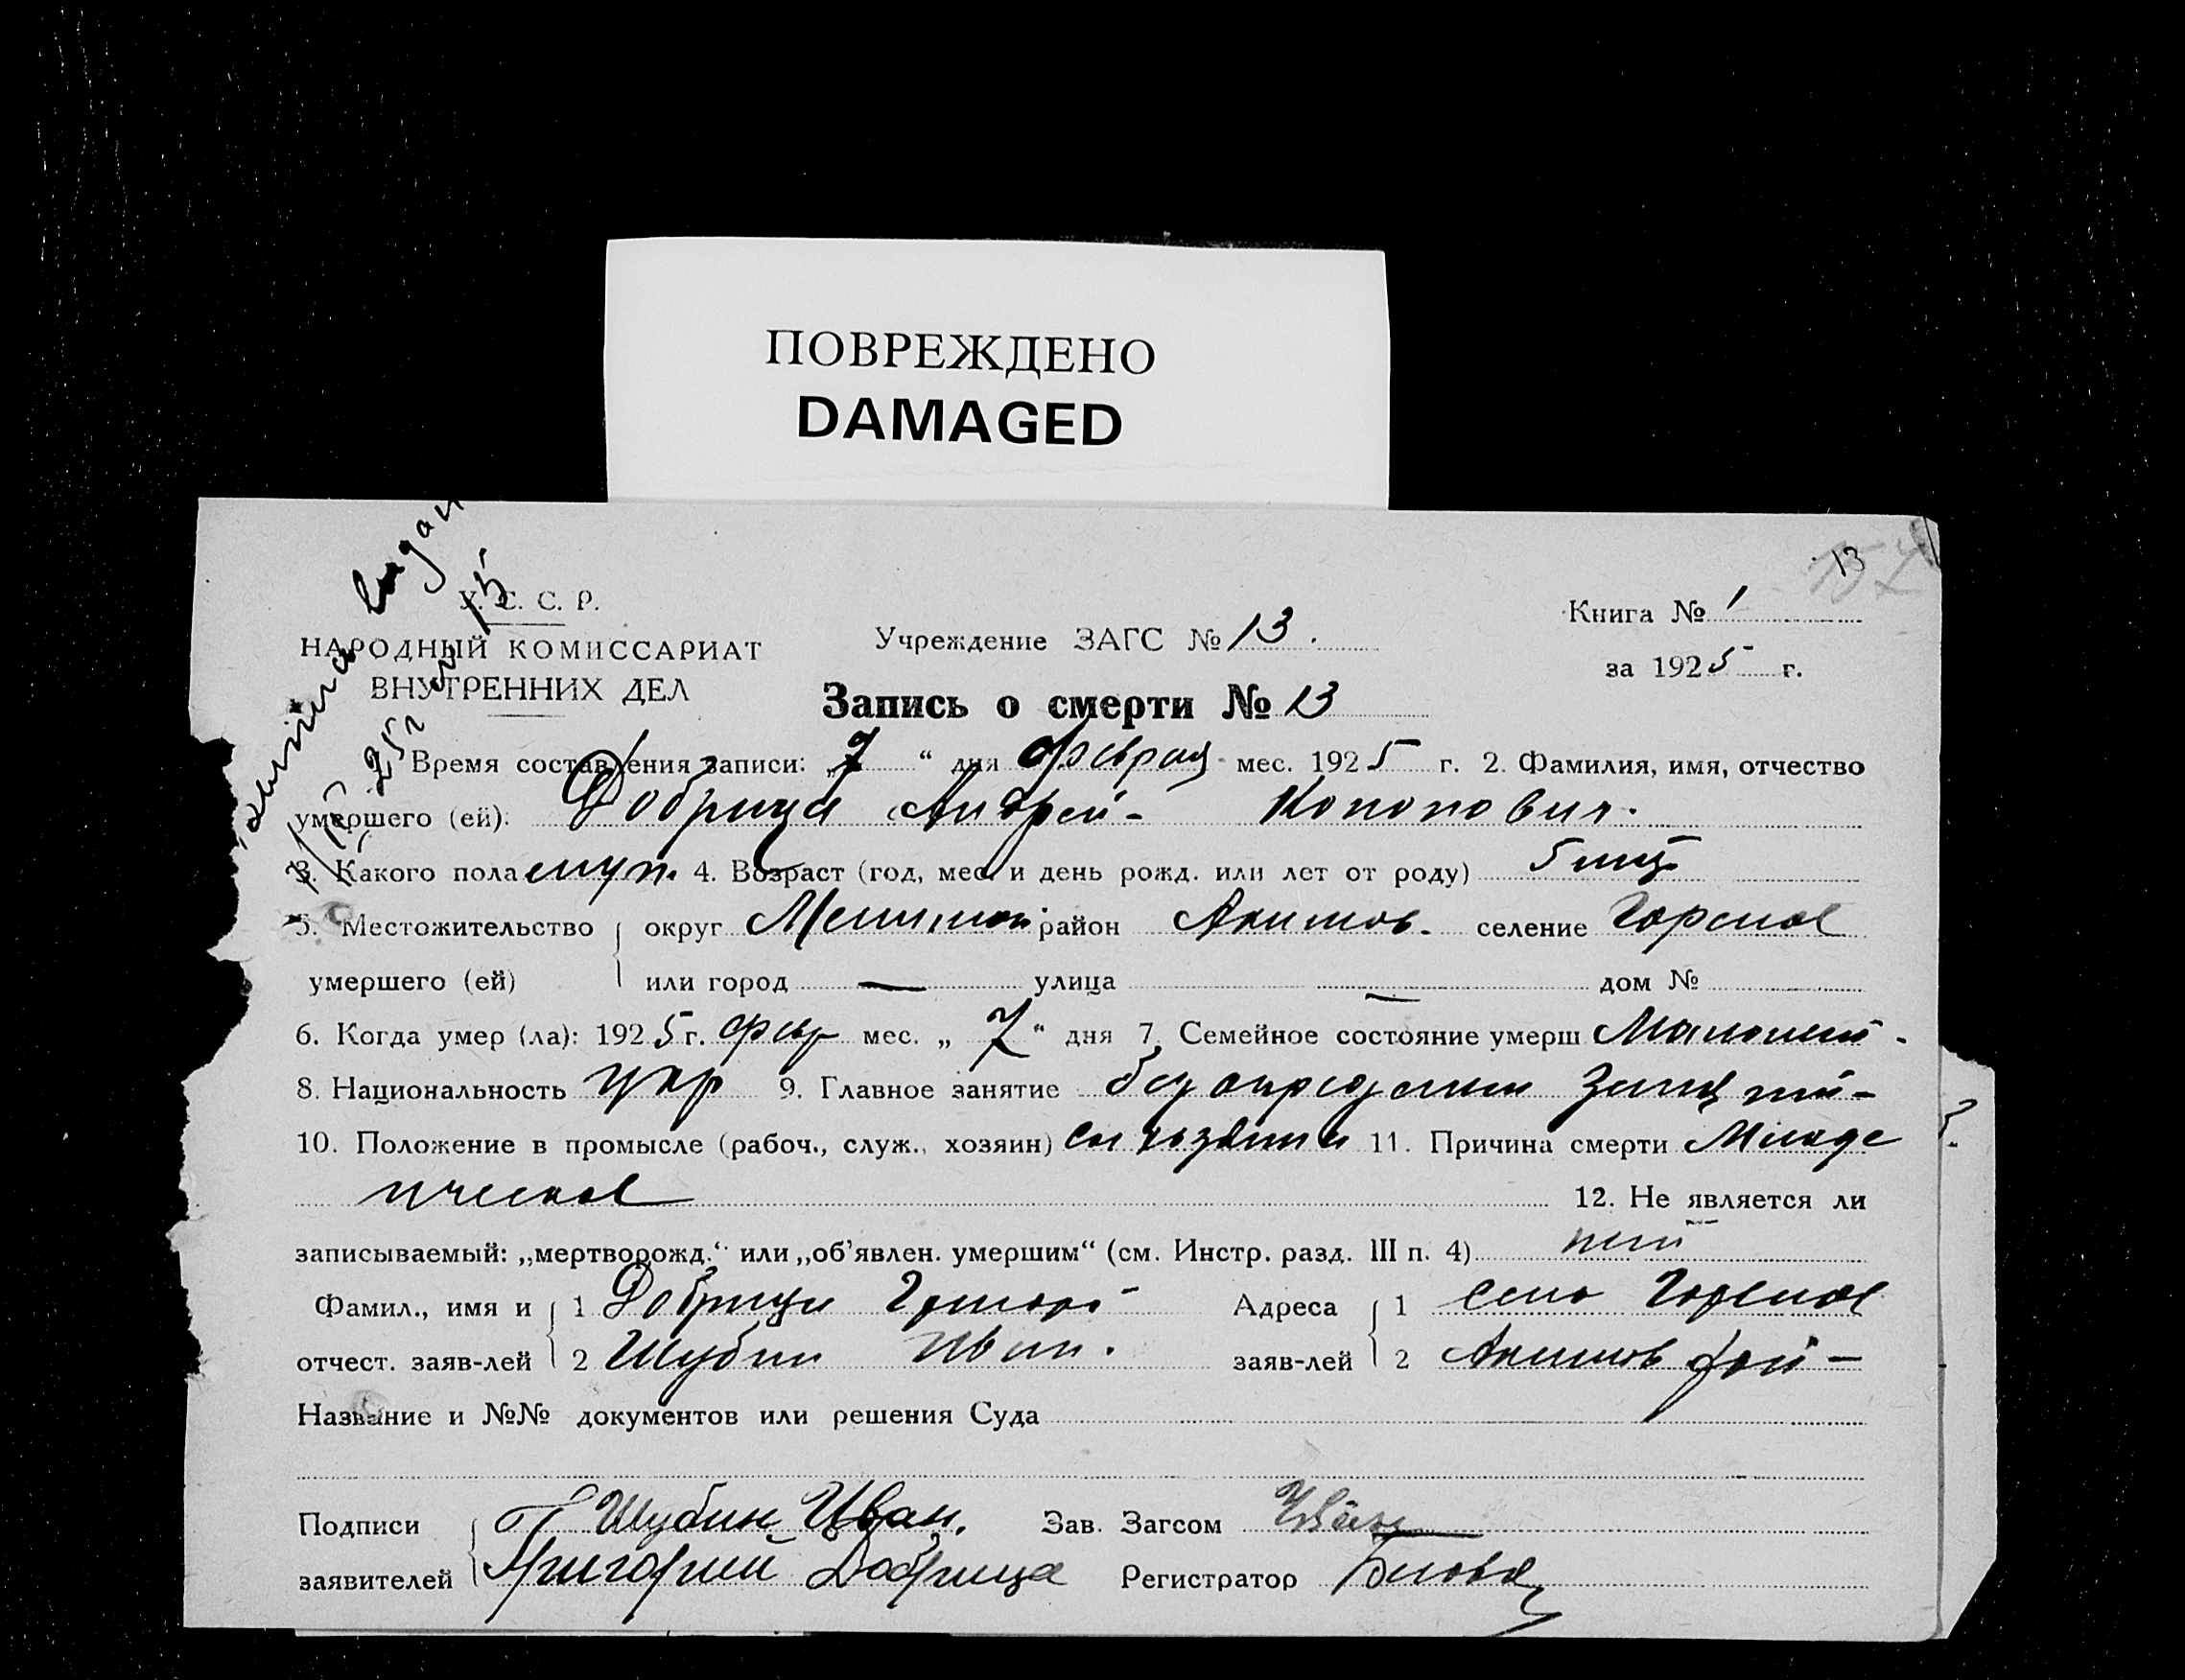 ПОВРЕЖДЕНО
DAMAGED
13
У. С. С. Р.
НАРОДНЫЙ КОМИССАРИАТ
ВНУТРЕННИХ ДЕЛ
Учреждение ЗАГС № 13.
Книга № 1
за 1925 г.
Запись о смерти № 13
Время составления записи: „7“ дня февраля мес. 1925 г. 2. Фамилия, имя, отчество
умершего (ей). Добрица Андрей Кононович.
3. Какого пола муж. 4. Возраст (год, мес. и день рожд. или лет от роду) 5 мец
5. Местожительство округ Мелитоп. район Акимов. селение Горелое
умершего (ей) или город — улица — дом №
6. Когда умер (ла): 1925 г. февр мес. „7“ дня 7. Семейное состояние умерш Малолет
8. Национальность Укр 9. Главное занятие без определен занятий
10. Положение в промысле (рабоч., служ., хозяин) сын хозяина 11. Причина смерти Младе
ническая 12. Не является ли
записываемый: „мертворожд.“ или „об'явлен. умершим“ (см. Инстр. разд. III п. 4) нет
Фамил., имя и 1 Добрица Григорий Адреса 1 село Горелое
отчест. заяв-лей 2 Шубин Иван. заяв-лей 2 Акимов рай—
Название и №№ документов или решения Суда
Подписи Шубин Иван. Зав. Загсом
заявителей Григорий Добрица Регистратор